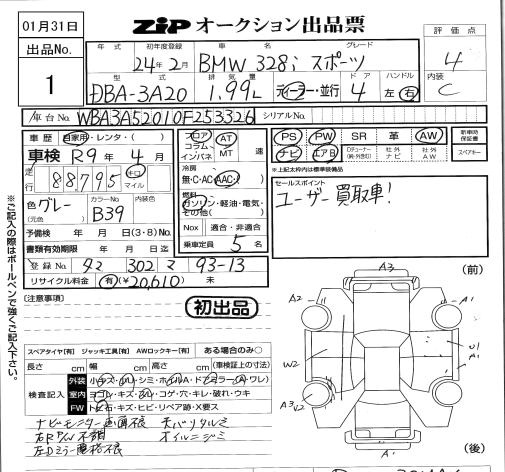 01月31日
ZIP オークション出品票
出品No.
1
年式 初年度登録 車名 グレード
24年2月 BMW 328i スポーツ
型式 排気量 ドア ハンドル
DBA-3A20 1.99L 4 左・右
ディーラー・並行
評価点
4
内装
C
車台No. WBA3A52010F253326 シリアルNo.
車歴 自家用・レンタ・( )
車検 R9年4月
走行 88795 キロ マイル
色 グレー カラーNo. B39 内装色
(元色)
予備検 年 月 日(3・8)No.
書類有効期限 年 月 日迄
登録No. 302 93-13
リサイクル料金 有(¥20,610) 未
フロア コラム インパネ
AT MT 速
冷房
無・C・AC・AAC
燃料
ガソリン・軽油・電気・その他( )
Nox 適合・非適合
乗車定員 5 名
PS PW SR 革 AW
ナビ エアB 社外ナビ 社外AW
新車時保証書
スペアキー
*上記太枠内は標準装備品
セールスポイント
ユーザー買取車!
(注意事項)
初出品
スペアタイヤ[有] ジャッキ工具[有] AWロックキー[有] ある場合のみ○
長さ cm 幅 cm 高さ cm (車検証上の寸法)
検査記入
外装
室内 ヨゴレ・キズ・スレ・コゲ・穴・キレ・破れ・ウキ
FW トビ石・キズ・ヒビ・リペア跡・X要ス
ナビモニター画面不良
右P/W不調 オイルニジミ
左Dミラー格格不良
※ご記入の際はボールペンで強くご記入下さい。
(前)
A3
A2
A1
W2
U1
A3
A1
A1
(後)